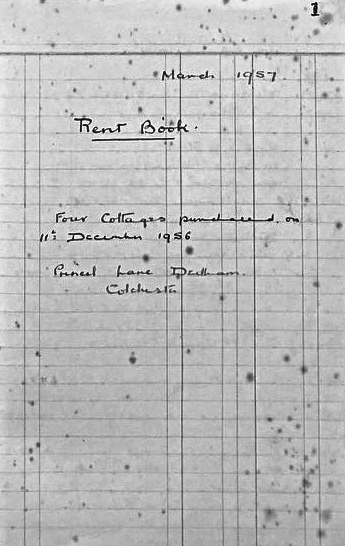 1
March 1957.
Rent Book.
Four Cottages purchased on
11th December 1956
Princel Lane Dedham.
Colchester